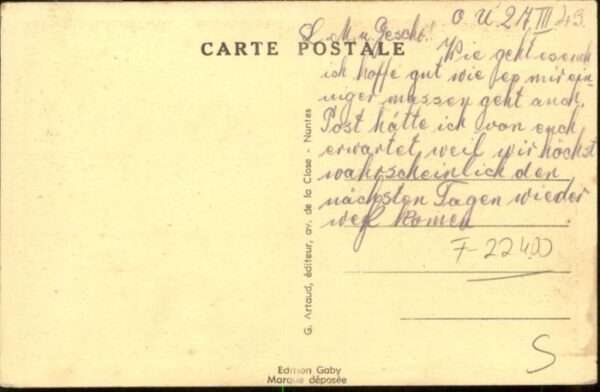 CARTE POSTALE
O. U. 27. III 43.
L. M u Geschw!
Wie geht es euch
ich hoffe gut wie es mir ein-
niger massen geht auch.
Post hätte ich von euch
erwartet weil wir höchst
wahrscheinlich den
nächsten Tagen wieder
weg komen
F-22400
S
G. Artaud, éditeur, av. de la Close - Nantes
Edition Gaby
Marque déposée